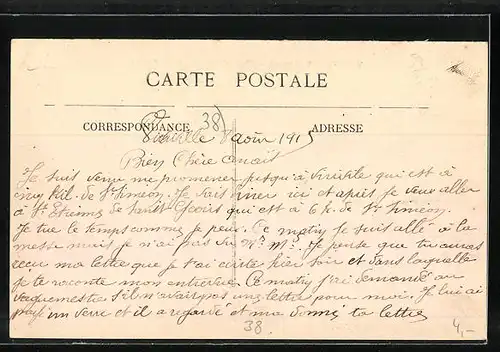 CARTE POSTALE
38)
CORRESPONDANCE
ADRESSE
Viriville 8 août 1915
Bien Chère Anaïs
Je suis venu me promener jusqu'à Viriville qui est à
cinq kil. de St Siméon. Je vais diner ici et apuis je veux aller
à St Etienne de Saint Geoirs qui est à 6 k. de St Siméon.
Je tue le temps comme je peux. Ce matin je suis allé à la
messe mais je n'ai pas vu Mr M. Je pense que tu auras
reçu ma lettre que je t'ai écrite hier soir et dans laquelle
je te raconte mon entrevue. Ce matin j'ai demandé au
vaguemestre s'il n'avait pas une lettre pour moi. Je lui ai
payé un verre et il a regardé et m'a donné ta lettre
38.
4,-